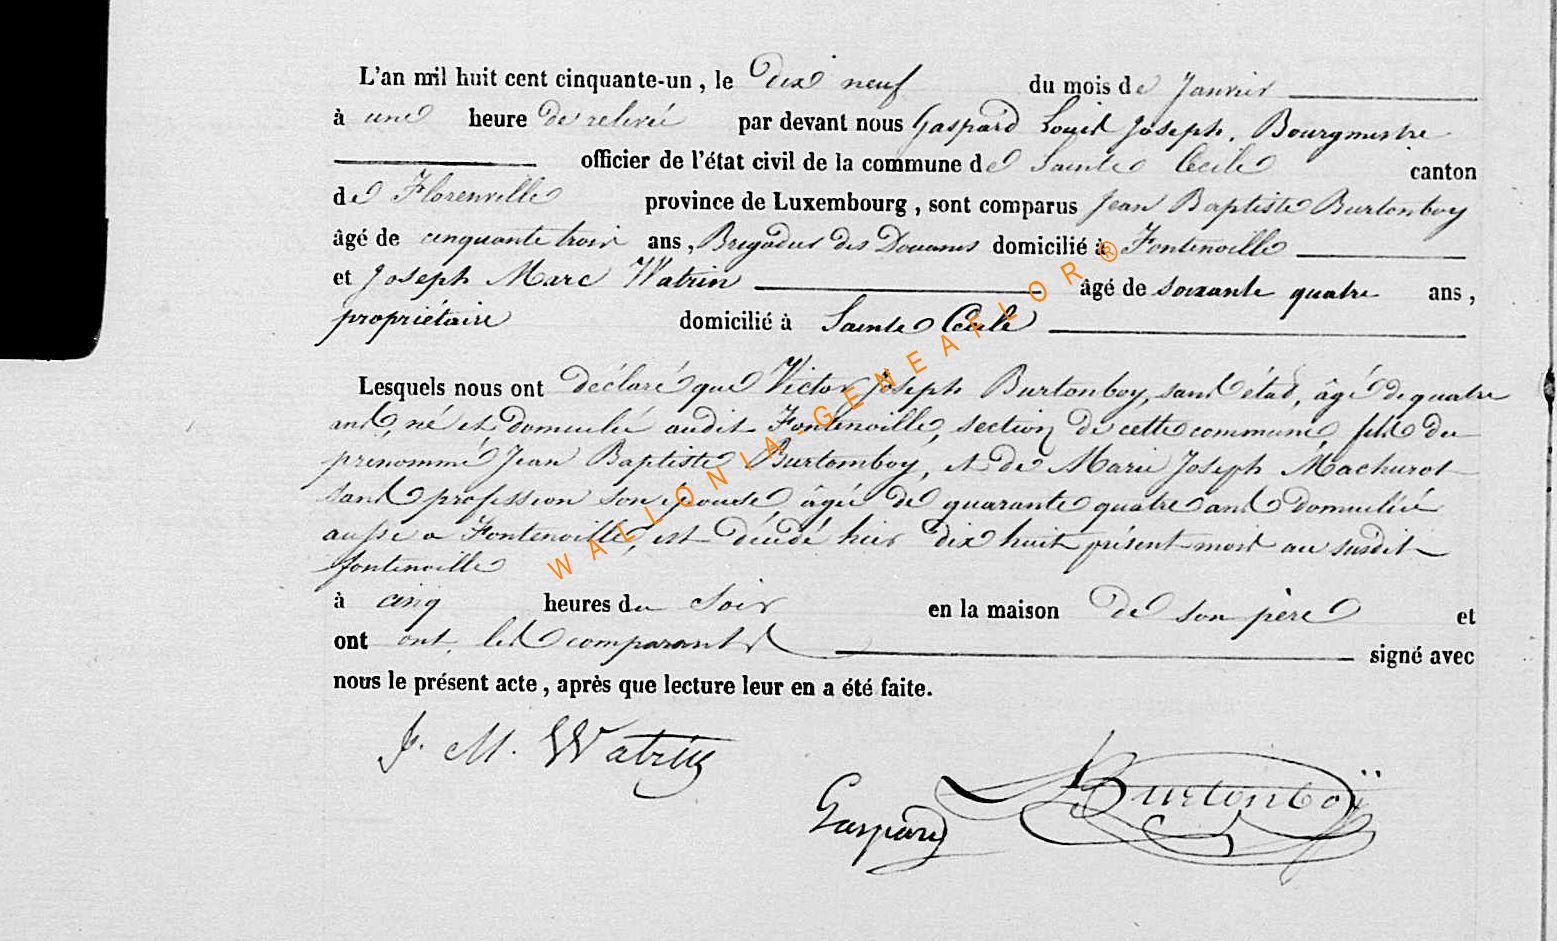 L'an mil huit cent cinquante-un, le dix neuf du mois de Janvier
à une heure de relevée par devant nous Gaspard Louis Joseph, Bourgmestre
officier de l'état civil de la commune de Sainte Cecile canton
de Florenville province de Luxembourg, sont comparus Jean Baptiste Burtonboy
âgé de cinquante trois ans, Brigadier des Douanes domicilié à Fontenoille
et Joseph Marc Watrin âgé de soixante quatre ans,
propriétaire domicilié à Sainte Cecile
Lesquels nous ont déclaré que Victor Joseph Burtonboy, sans état, âgé de quatre
ans, né et domicilié audit Fontenoille, section de cette commune, fils du
prenommé Jean Baptiste Burtomboy, et de Marie Joseph Machurot
sans profession son épouse, âgée de quarante quatre ans domiciliée
aussi a Fontenoille, est décédé hier dix huit présent mois au susdit
fontenoille
à cinq heures du soir en la maison de son père et
ont ont les comparants signé avec
nous le présent acte, après que lecture leur en a été faite.
J. M. Watrin
Burtonboÿ
Gaspard
WALLONIA-GENEAFLOR®